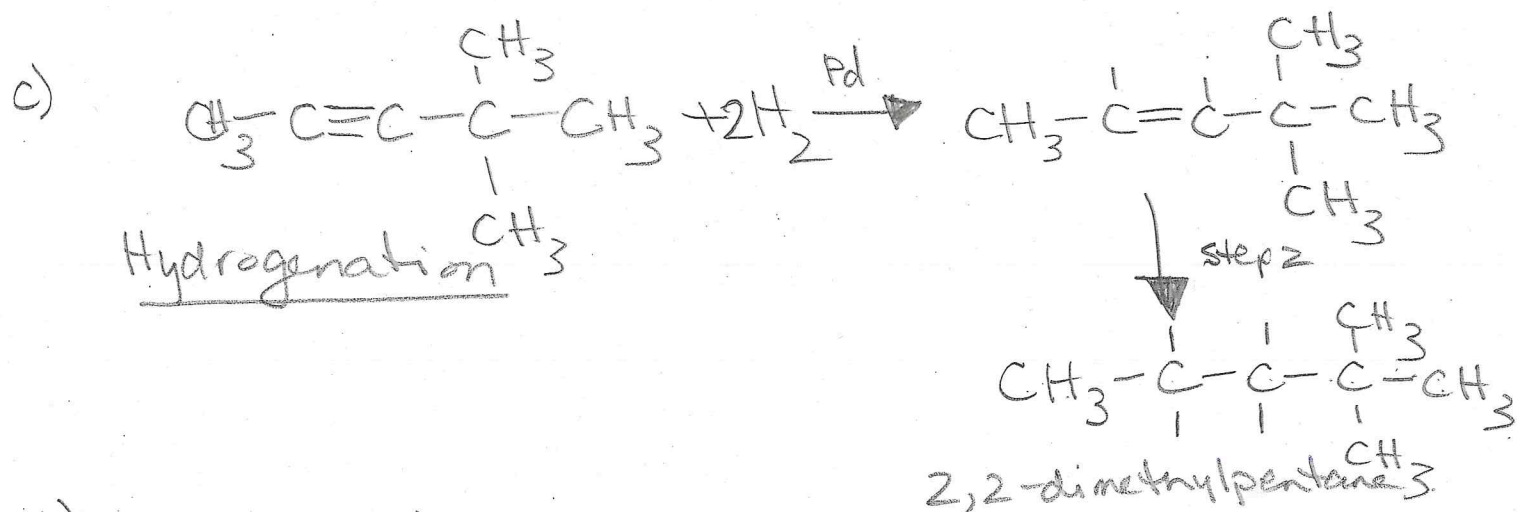 c)
CH3
CH3-C≡C-C-CH3 +2H2
CH3
Pd
CH3
CH3-C=C-C-CH3
CH3
Hydrogenation
step 2
CH3
CH3-C-C-C-CH3
CH3
2,2-dimethylpentane